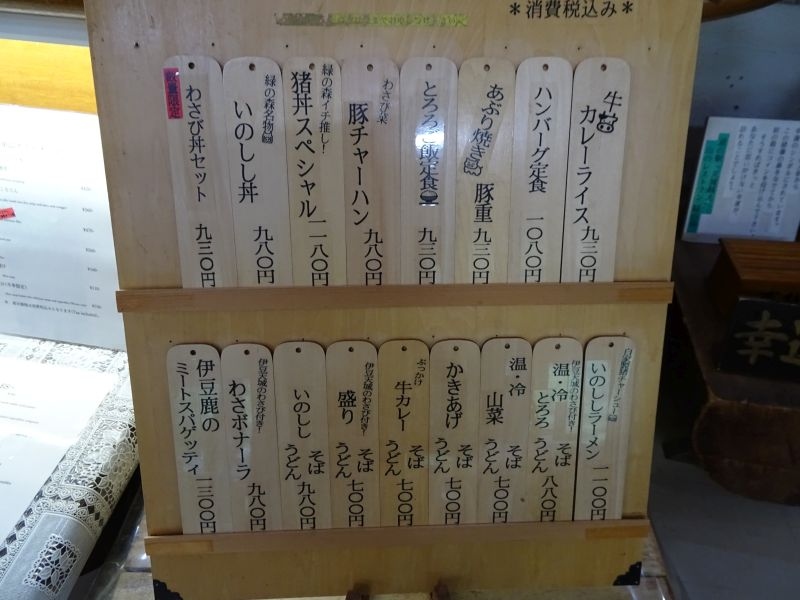 ＊消費税込み＊
牛カレーライス 九三〇円
ハンバーグ定食 一〇八〇円
あぶり焼き豚重 九三〇円
とろろご飯定食 九三〇円
わさび菜
豚チャーハン 九八〇円
緑の森イチ推し！
猪丼スペシャル 一一八〇円
緑の森名物
いのしし丼 九八〇円
数量限定
わさび丼セット 九三〇円
自家製猪チャーシュー
いのししラーメン 一一〇〇円
伊豆天城のわさび付き！
温・冷 とろろ そば うどん 八八〇円
温・冷 山菜 そば うどん 七〇〇円
かきあげ そば うどん 七〇〇円
ぶっかけ
牛カレー そば うどん 七〇〇円
伊豆天城のわさび付き！
盛り そば うどん 七〇〇円
いのしし そば うどん 九八〇円
伊豆天城のわさび付き！
わさボナーラ 九八〇円
伊豆鹿の
ミートスパゲッティ 一三〇〇円
幸